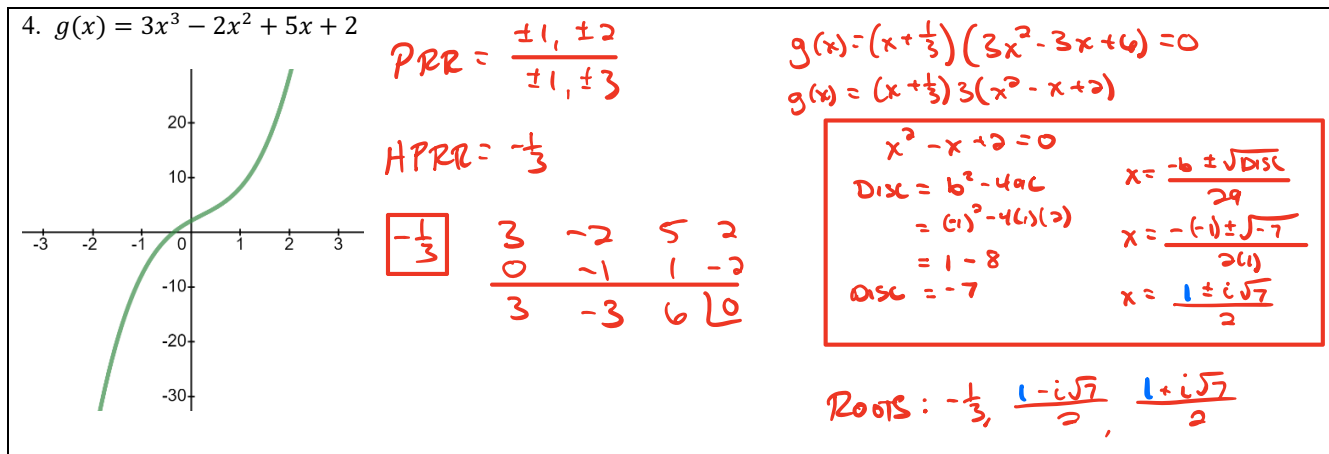 4. g(x) = 3x³ − 2x² + 5x + 2
20
10
-3 -2 -1 0 1 2 3
-10
-20
-30
PRR = ±1, ±2 / ±1, ±3
HPRR = -1/3
-1/3 3 -2 5 2
0 -1 1 -2
3 -3 6 0
g(x) = (x + 1/3)(3x² - 3x + 6) = 0
g(x) = (x + 1/3) 3(x² - x + 2)
x² - x + 2 = 0
DISC = b² - 4ac
= (-1)² - 4(1)(2)
= 1 - 8
DISC = -7
x = -b ± √DISC / 2a
x = -(-1) ± √-7 / 2(1)
x = 1 ± i√7 / 2
ROOTS: -1/3, 1 - i√7 / 2, 1 + i√7 / 2